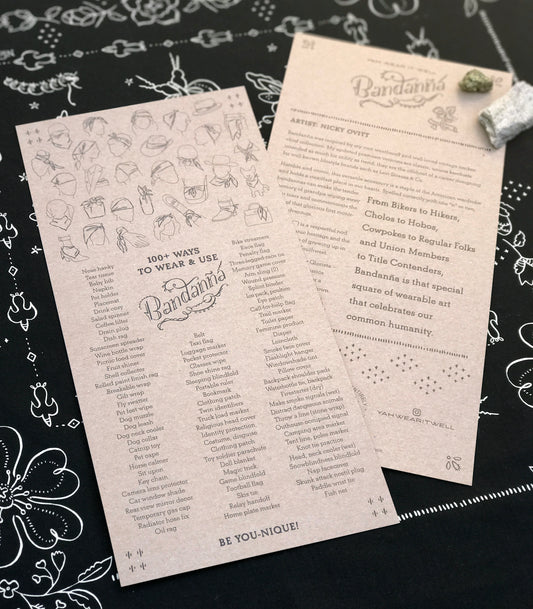 100+ WAYS
TO WEAR & USE
Bandanna
Nose hanky
Tear tissue
Baby bib
Napkin
Pot holder
Placemat
Drink cozy
Salad spinner
Coffee filter
Drain plug
Dish rag
Sunscreen wiper
Wine bottle wrap
Picnic food cover
Fruit shiner
Shell collector
Rolled paint finish rag
Breakable wrap
Gift wrap
Fly swatter
Pet last wipe
Dog muzzle
Dog leash
Dog neck cooler
Dog collar
Catnip toy
Pet cape
Horse calmer
Sit upon
Key chain
Camera lens protector
Car window shade
Rear view mirror decor
Temporary gas cap
Radiator hose fix
Oil rag
Belt
Taxi flag
Luggage marker
Tush protector
Glasses wipe
Shoe shine rag
Sleeping blindfold
Portable ruler
Bookmark
Clothing patch
Twin identifiers
Truck load marker
Religious head cover
Identity protection
Costume, disguise
Clothing patch
Toy soldier parachute
Doll blanket
Magic trick
Game blindfold
Football flag
Skis tie
Relay handoff
Home plate marker
Bike streamers
Race flag
Penalty flag
Three-legged race tie
Memory game cover
Arm sling (2)
Wound pressure
Splint binder
Ice pack, position
Eye patch
Call-for-help flag
Trail marker
Toilet paper
Feminine product
Diaper
Loincloth
Smoke face cover
Flashlight hanger
Windowshade tint
Pillow cover
Backpack shoulder pads
Waterbottle tie, backpack
Firestarter (dry)
Make smoke signals (wet)
Distract dangerous animals
Throw a line (stone wrap)
Outhouse occupied signal
Camping area marker
Tent line, poles marker
Knot tie practice
Head, neck cooler (wet)
Snowblindness blindfold
Nap facecover
Skunk attack outfit plug
Paddle wrist tie
Fish net
BE YOU-NIQUE!
YAH WEAR IT WELL
Bandanna
ARTIST: NICKY OVITT
From Bikers to Hikers,
Cholos to Hobos,
Cowpokes to Regular Folks
and Union Members
to Title Contenders,
Bandanna is that special
square of wearable art
that celebrates our
common humanity.
YAHWEARITWELL